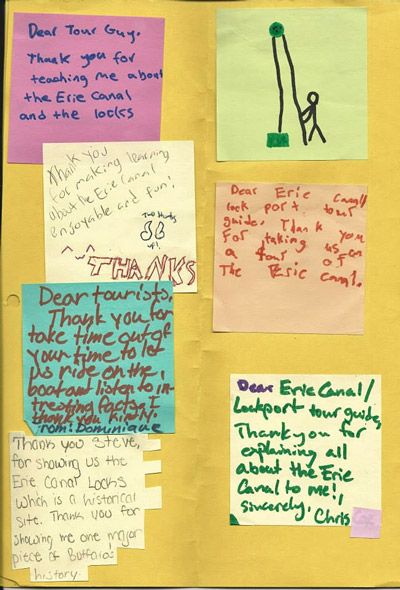 Dear Tour Guy,
Thank you for
teaching me about
the Erie Canal
and the locks
Thank you
for making learning
about the Erie Canal
enjoyable and fun!
Two thumbs
up!
THANKS
Dear tourists,
Thank you for
take time out of
your time to let
us ride on the
boat and listen to in-
treasting facts.
thank you
from: Dominique
Thank you Steve,
for showing us the
Erie Canal Locks
which is a historical
site. Thank you for
showing me one major
piece of Buffalos
history.
Dear Erie Canal/
lock port tour
guide, Thank you
For taking us on
a tour of
The Erie canal.
Dear Erie Canal/
Lockport tour guide,
Thank you for
explaining all
about the Erie
Canal to me!,
sincerely, Chris